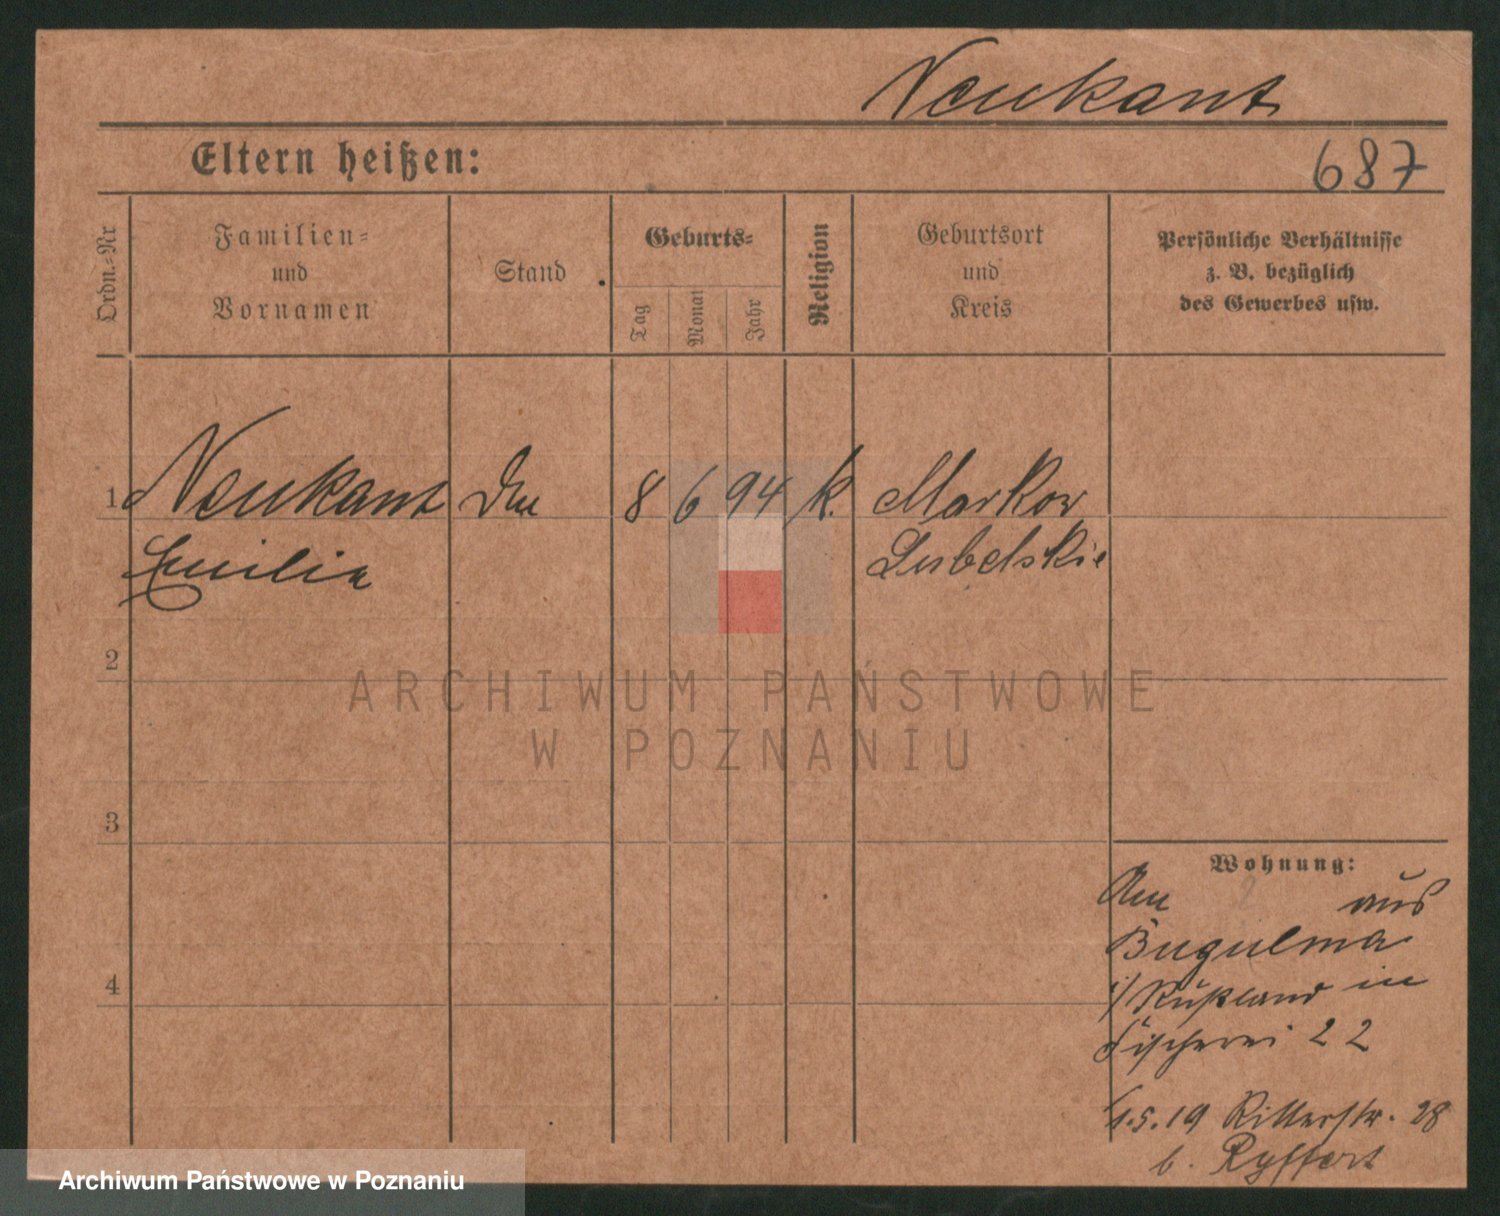 Neukant
Eltern heißen:
687
Ordn.-Nr
Familien-
und
Vornamen
Stand
Geburts-
Tag
Monat
Jahr
Religion
Geburtsort
und
Kreis
Persönliche Verhältnisse
z. B. bezüglich
des Gewerbes usw.
1 Neukant 8 6 94 k. Markow
Emilia Lubelskie
2
ARCHIWUM PAŃSTWOWE
W POZNANIU
3
4
Wohnung:
Am aus
Bugulma
i/Rußland in
Fischerei 22
1.5.19 Ritterstr. 28
b. Ryffert
Archiwum Państwowe w Poznaniu